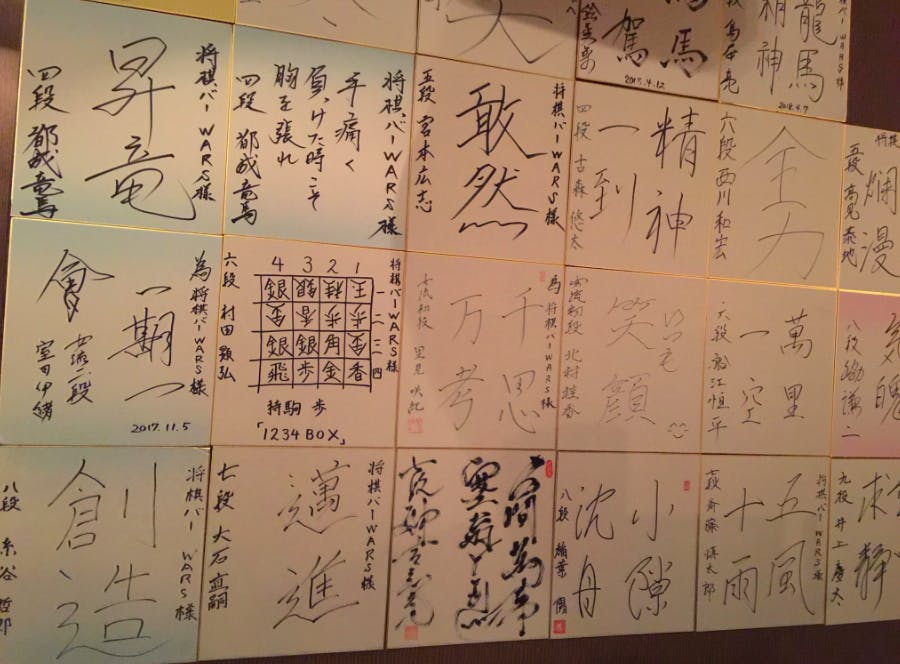 駕
2015.4.12
精神
龍馬
2018.4.7
将棋バーWARS様
昇竜
四段 都成竜馬
将棋バーWARS様
手痛く
負けた時こそ
胸を張れ
四段 都成竜馬
将棋バーWARS様
敢然
五段 宮本広志
精神
一到
四段 古森悠太
全力
六段 西川和宏
将棋
爛漫
五段 髙見泰地
為将棋バーWARS様
一期一
會
女流二段
室田伊緒
2017.11.5
将棋バーWARS様
4 3 2 1
銀 銀 桂 王 一
金 香 歩 歩 二
銀 銀 角 金 三
飛 歩 金 香 四
持駒 歩
「1234BOX」
六段 村田顕弘
為将棋バーWARS様
千思
万考
女流初段 里見咲紀
いつも
笑顔
女流初段 北村桂香
萬里
一空
六段 船江恒平
気魄
八段 脇謙二
将棋バーWARS様
創造
八段 糸谷哲郎
将棋バーWARS様
邁進
七段 大石直嗣
小隙
沈舟
八段 稲葉陽
将棋バーWARS様
五風
十雨
七段 斎藤慎太郎
求静
九段 井上慶太